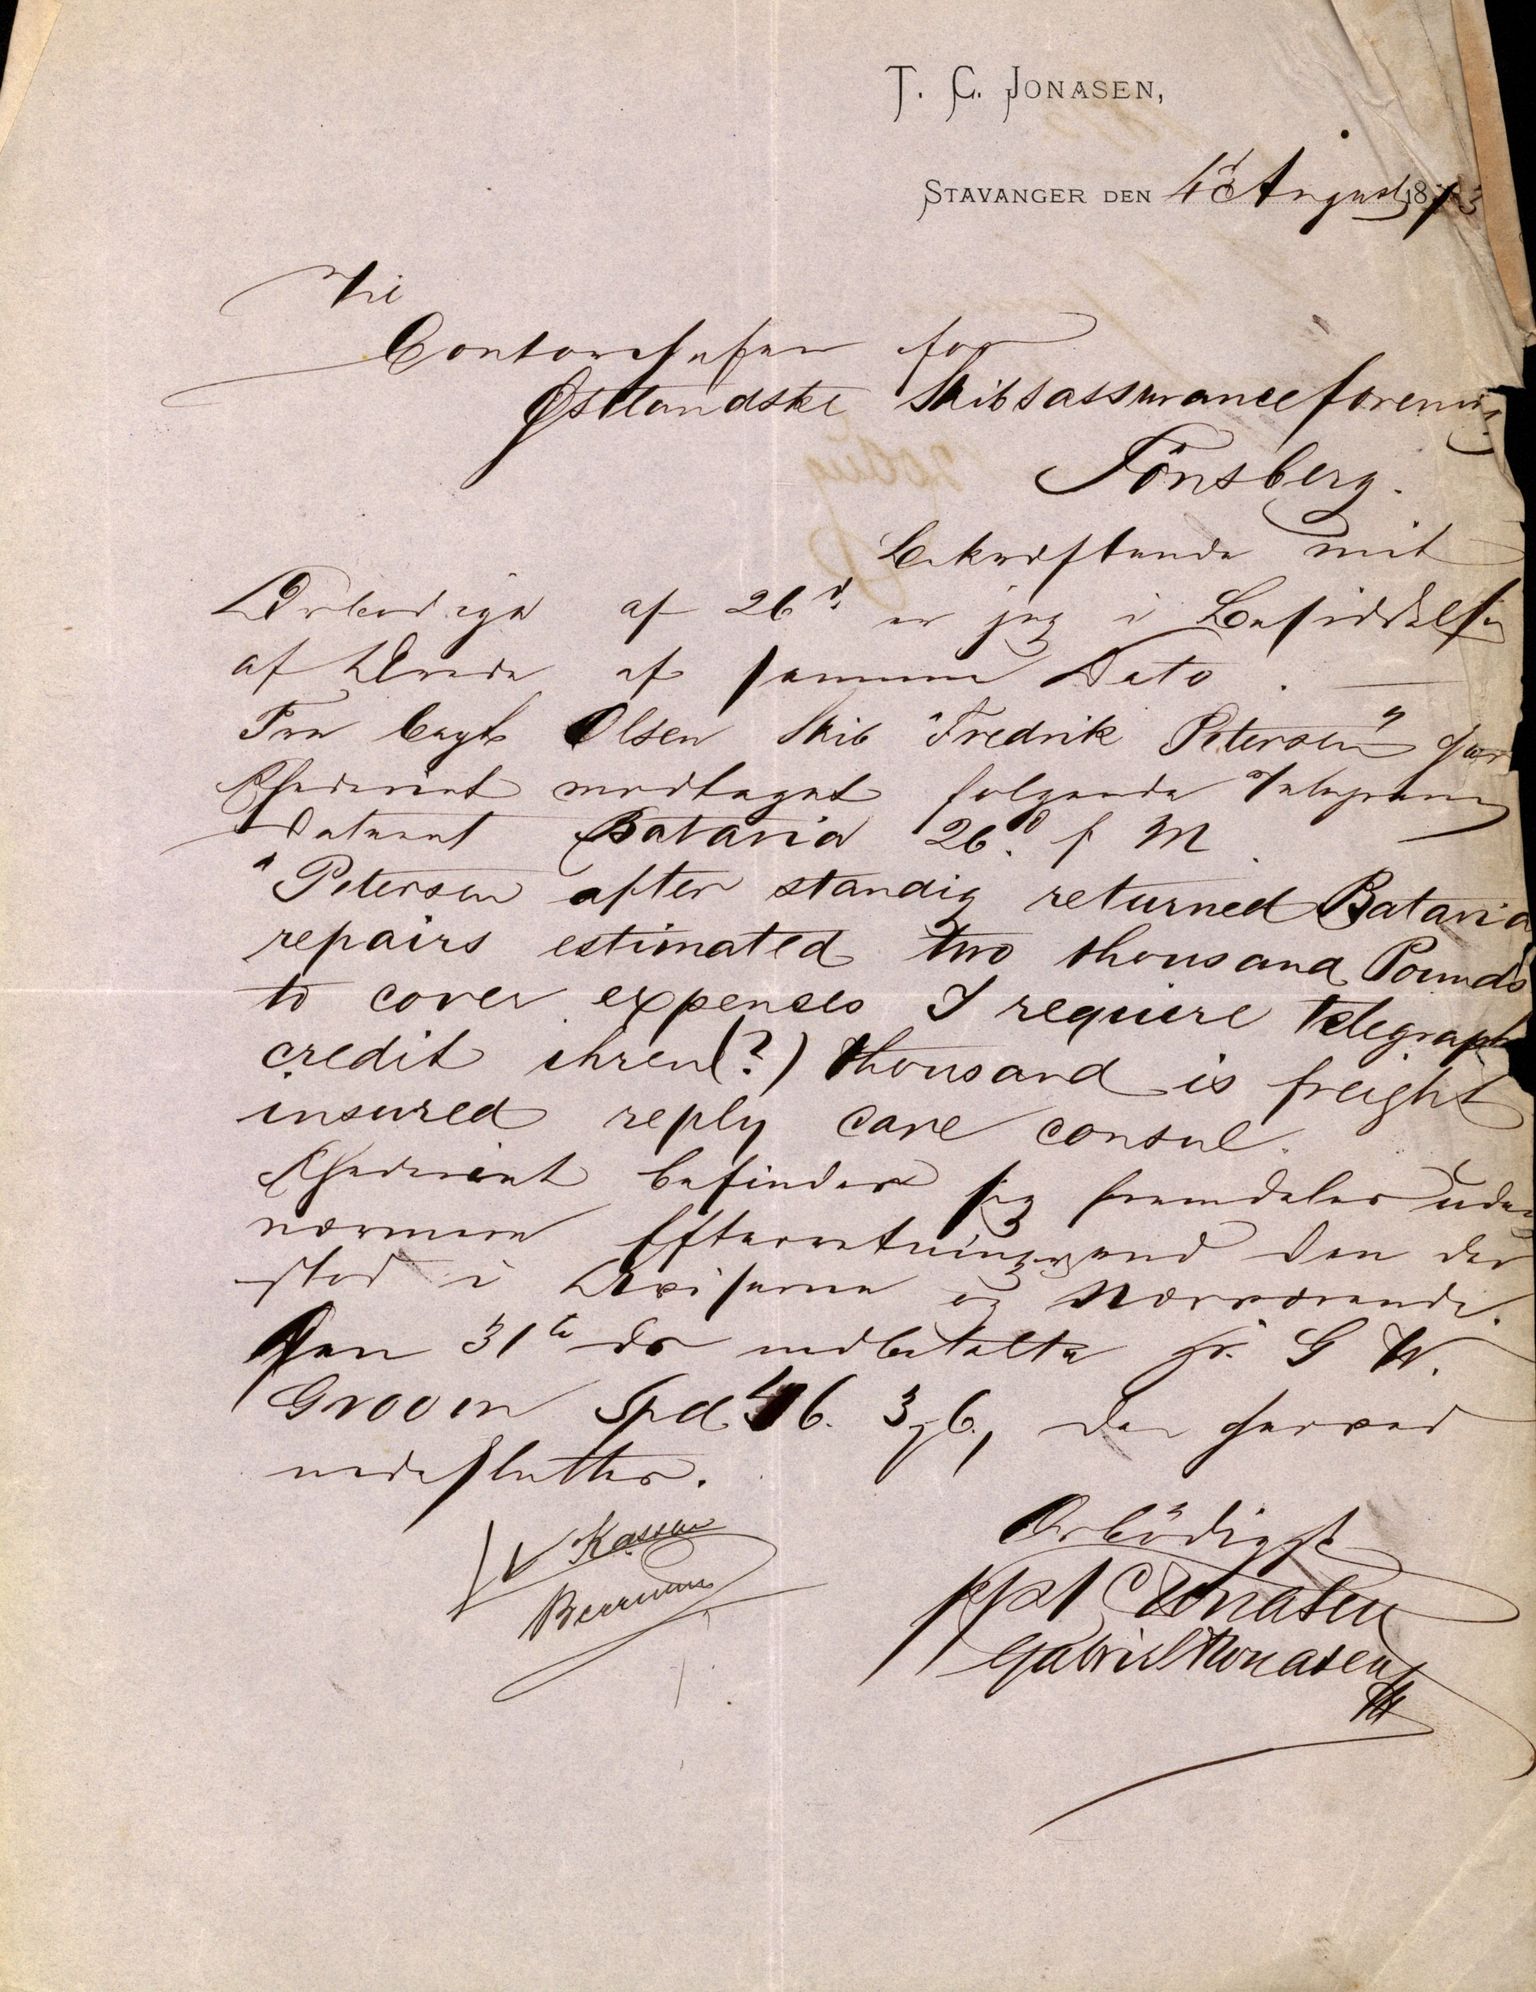 T. C. Jonasen,
Stavanger den 4de August 1873
Til
Contorchefen for
Østlandske Skibsassuranceforening
Tönsberg.
Bekræftende mit
Ærbødige af 26d. er jeg i Besiddelse
af Ærede af samme Dato. —
Fra Capt Olsen Skib "Fredrik Petersen" har
Rhederiet modtaget følgende Telegram
dateret Batavia 26d. f M.
"Petersen after standig returned Batavia
repairs estimated two thousand Pounds
to cover expenses I require telegraph
credit ihren(?) thousand is freight
insured reply care consul.
Rhederiet befinder sig fremdeles uden
nærmere Efterretninger end den der
stod i Aviserne og Nærværende.
Den 31te ds indbetalte Hr. G W.
Groom Spd 46. 3 6, der herved
indesluttes.
Ærbödigst
ppt C Jonasen
Gabriel Jonasen
Kassen